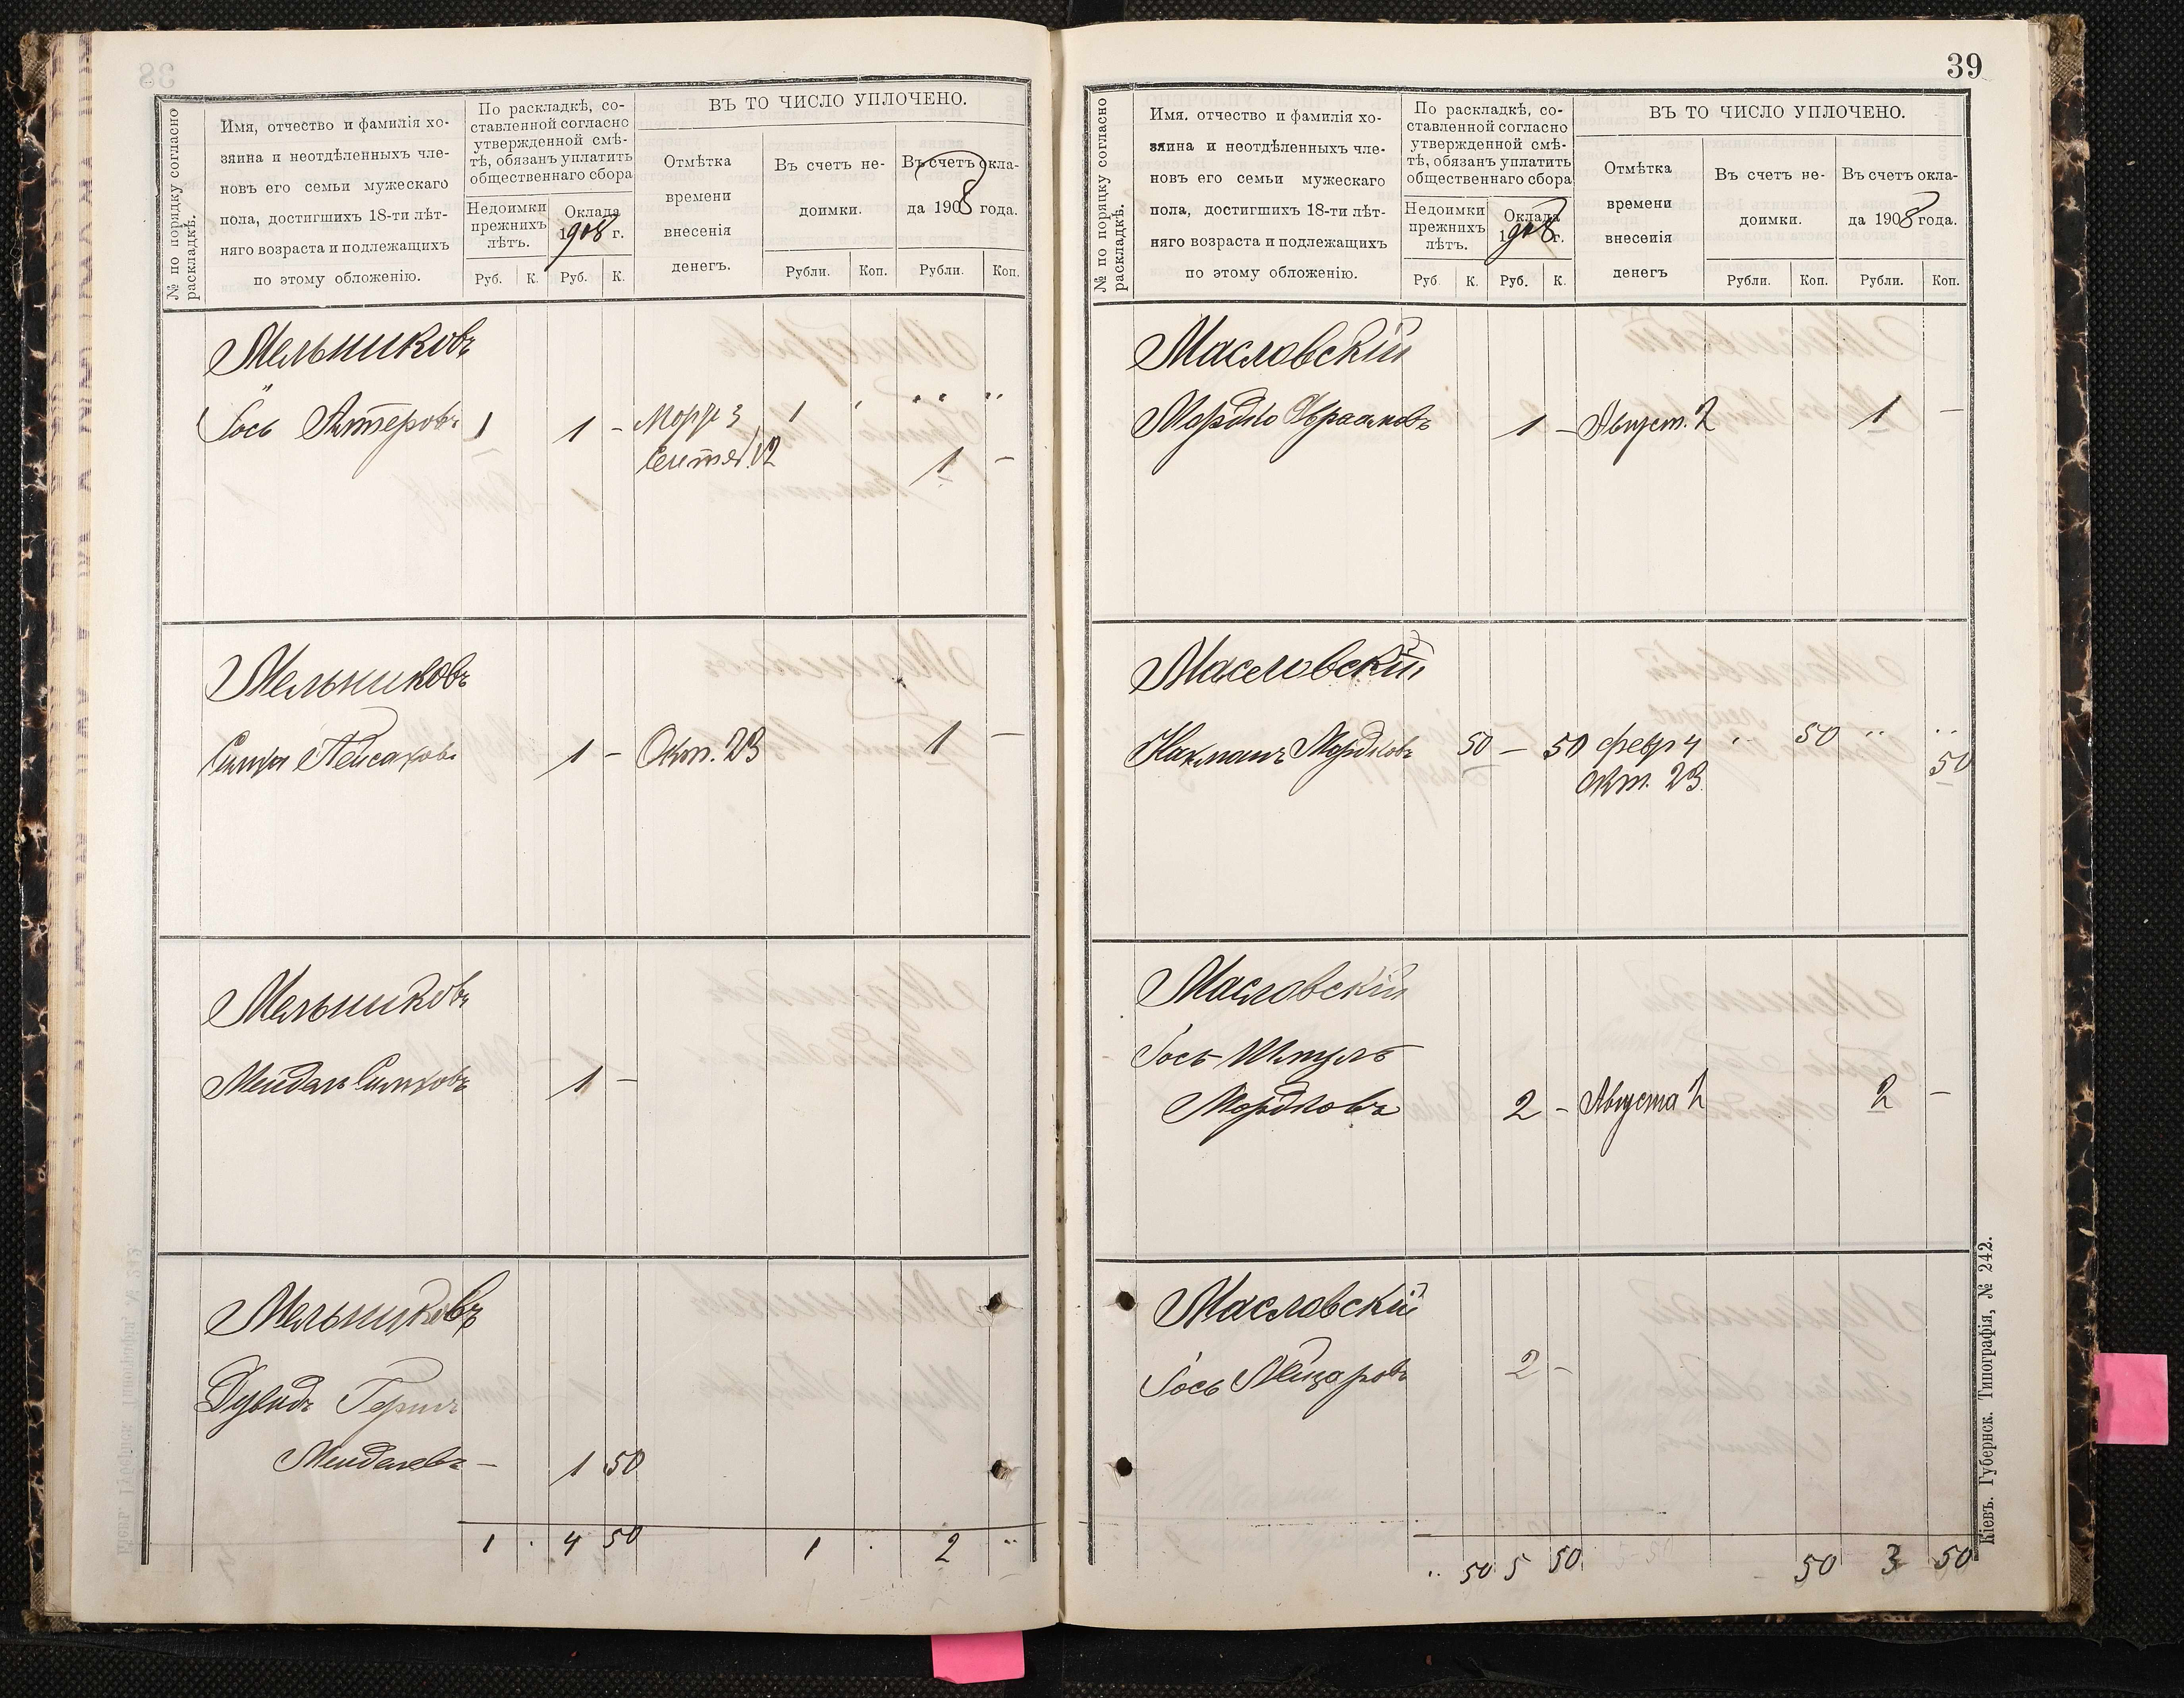 № по порядку согласно
раскладкѣ.
Имя, отчество и фамилія хо-
зяина и неотдѣленныхъ чле-
новъ его семьи мужескаго
пола, достигшихъ 18-ти лѣт-
няго возраста и подлежащихъ
по этому обложенію.
По раскладкѣ, со-
ставленной согласно
утвержденной смѣ-
тѣ, обязанъ уплатить
общественнаго сбора
Недоимки
прежнихъ
лѣтъ.
Оклада
1908 г.
Руб. К. Руб. К.
ВЪ ТО ЧИСЛО УПЛОЧЕНО.
Отмѣтка
времени
внесенія
денегъ.
Въ счетъ не-
доимки.
Въ счетъ окла-
да 1908 года.
Рубли. Коп. Рубли. Коп.
Мельниковъ
Іось 1 1 - 3 1
12 1 -
Мельниковъ
Симха Пейсахов. 1 - Окт. 23 1 -
Мельниковъ
Мендаль Симховъ 1 -
Мельниковъ
Дувидъ Герш
Менделевъ - 1 50
1 4 50 1 2 "
39
№ по порядку согласно
раскладкѣ.
Имя, отчество и фамилія хо-
зяина и неотдѣленныхъ чле-
новъ его семьи мужескаго
пола, достигшихъ 18-ти лѣт-
няго возраста и подлежащихъ
по этому обложенію.
По раскладкѣ, со-
ставленной согласно
утвержденной смѣ-
тѣ, обязанъ уплатить
общественнаго сбора
Недоимки
прежнихъ
лѣтъ.
Оклада
1908 г.
Руб. К. Руб. К.
ВЪ ТО ЧИСЛО УПЛОЧЕНО.
Отмѣтка
времени
внесенія
денегъ
Въ счетъ не-
доимки.
Въ счетъ окла-
да 1908 года.
Рубли. Коп. Рубли. Коп.
Масловскій
Мордко Абрамовъ 1 - Август. 2 1 -
Масловскій
Нахманъ Мордковъ 50 - 50 февр 4 " 50 " "
окт. 23. 50
Масловскій
Іось-Шмуль
Мордковъ 2 - Августа 2 2 -
Масловскій
Іось Лейзаровъ 2 -
" 50 5 50 50 3 50
Кіевъ. Губернск. Типографія, № 242.